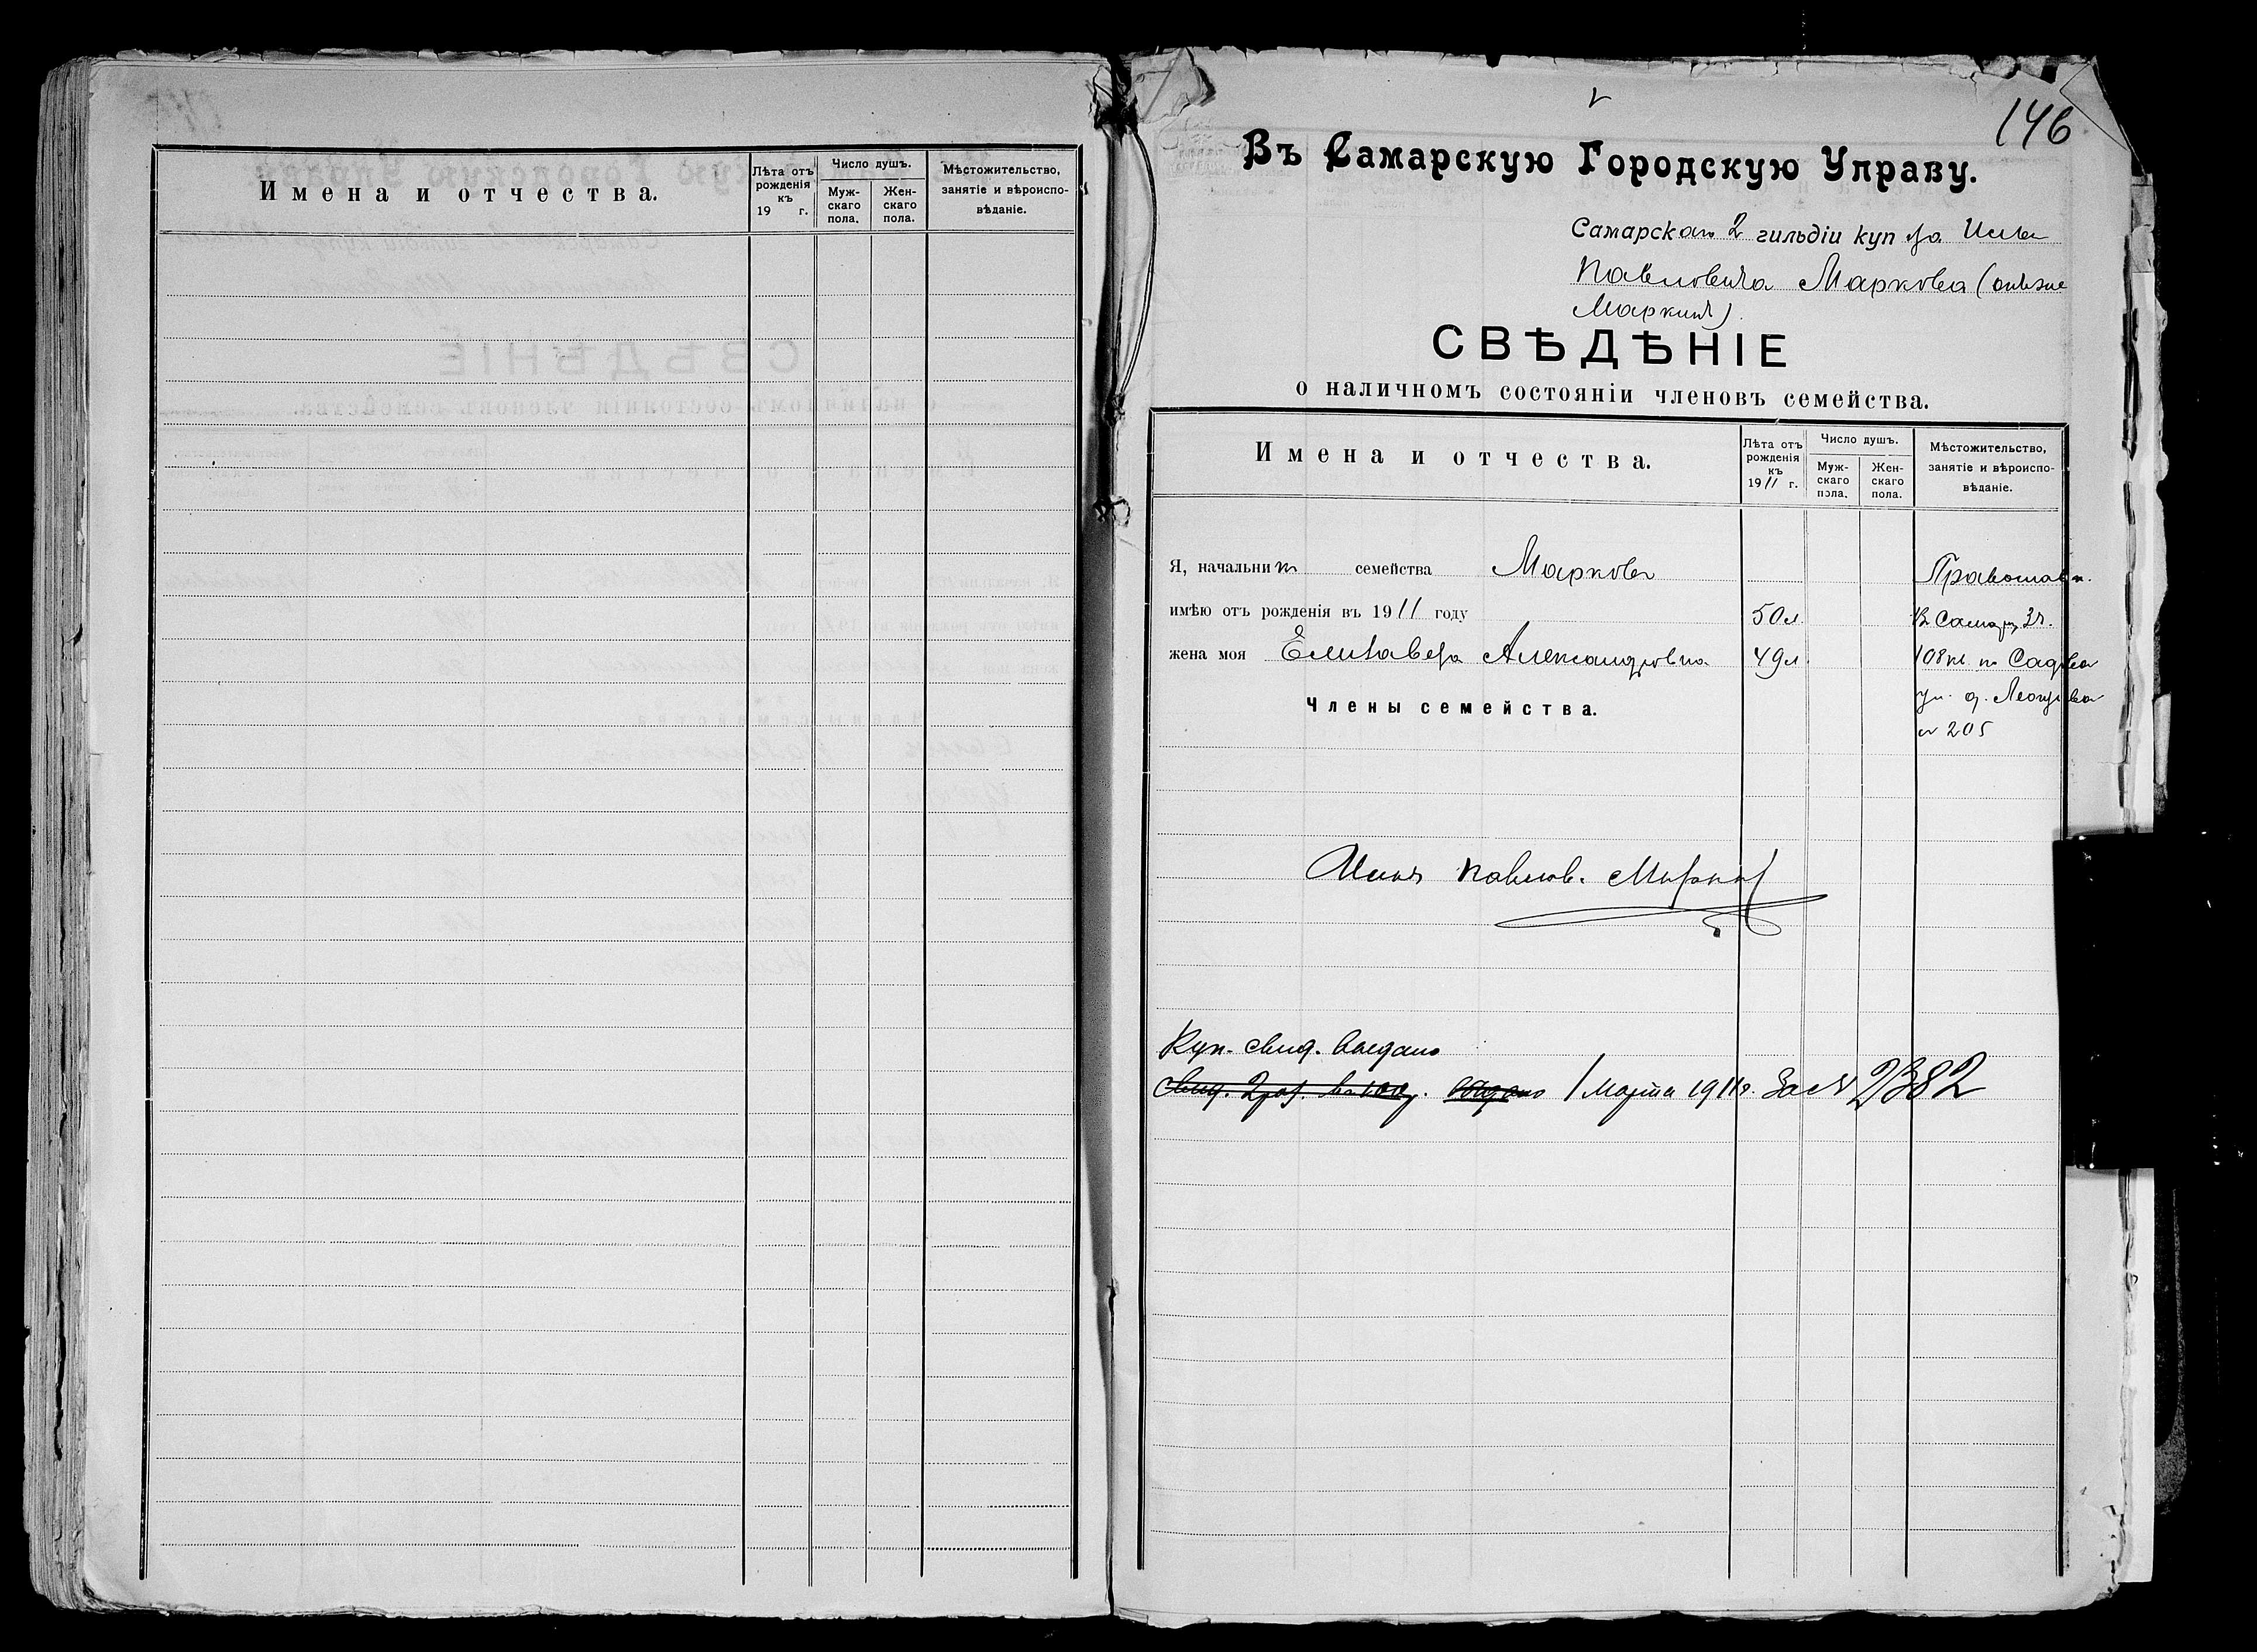 Имена и отчества.
Лѣта отъ рожденія къ 19 г.
Число душъ.
Муж-скаго пола.
Жен-скаго пола.
Мѣстожительство, занятіе и вѣроиспо-вѣданіе.
146
Въ Самарскую Городскую Управу.
Самарскаго 2 гильдіи куп
Павловича Маркова (онъ же
Маркинъ).
СВѢДѢНІЕ
о наличномъ состояніи членовъ семейства.
Имена и отчества.
Лѣта отъ рожденія къ 1911 г.
Число душъ.
Муж-скаго пола.
Жен-скаго пола.
Мѣстожительство, занятіе и вѣроиспо-вѣданіе.
Я, начальникъ семейства Марковъ
Православн.
имѣю отъ рожденія въ 1911 году 50 л
въ Самарѣ, 3 ч.
жена моя Елизавета Александровна 49 л.
108 кв. по Садовой
ул. д.
Члены семейства.
№ 205
Павлов.
Куп. свид. выдано
1 Марта 1911 г. за № 2382